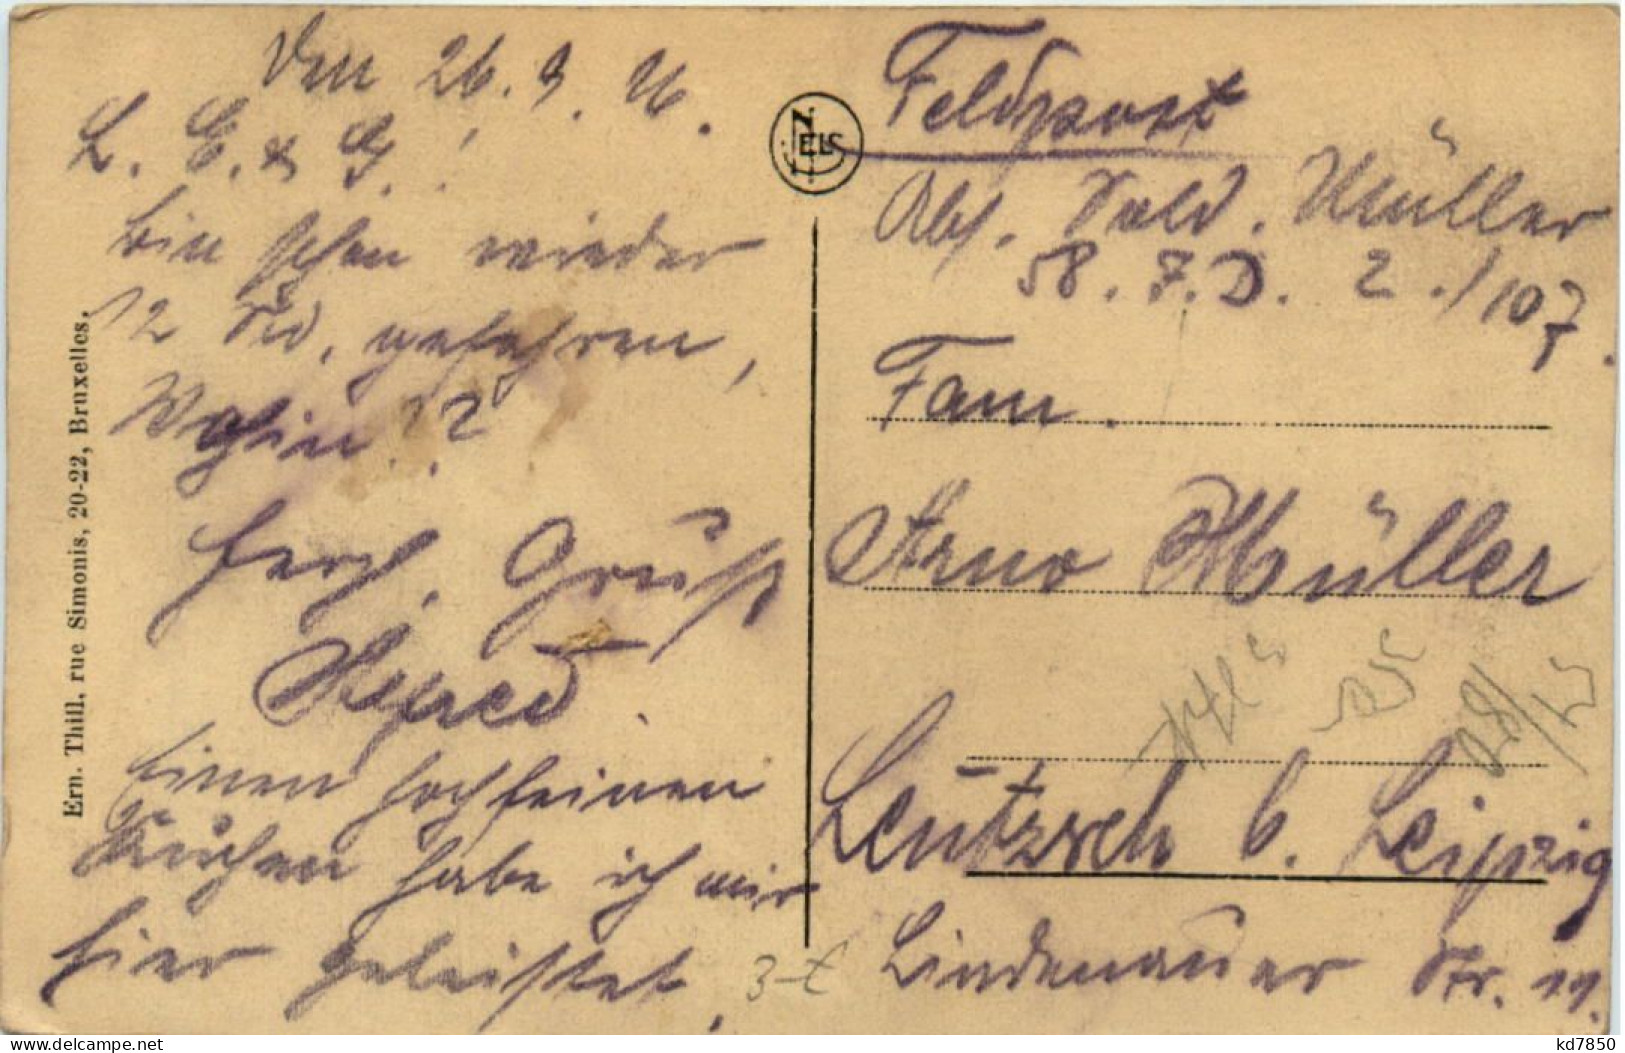 Den 26. 9. 16.
L. E. & G.!
bin schon wieder
12 Std. gefahren,
Wohin??
Herzl. Gruß
Alfred.
Einen hochfeinen
Kuchen habe ich mir
hier geleistet.
Ern. Thill, rue Simonis, 20-22, Bruxelles.
NELS
Feldpost
Abs. Sold. Müller
58. I.D. 2./107.
Fam.
Arno Müller
Leutzsch b. Leipzig
Lindenauer Str. 11.
3-t
delcampe.net
kd7850